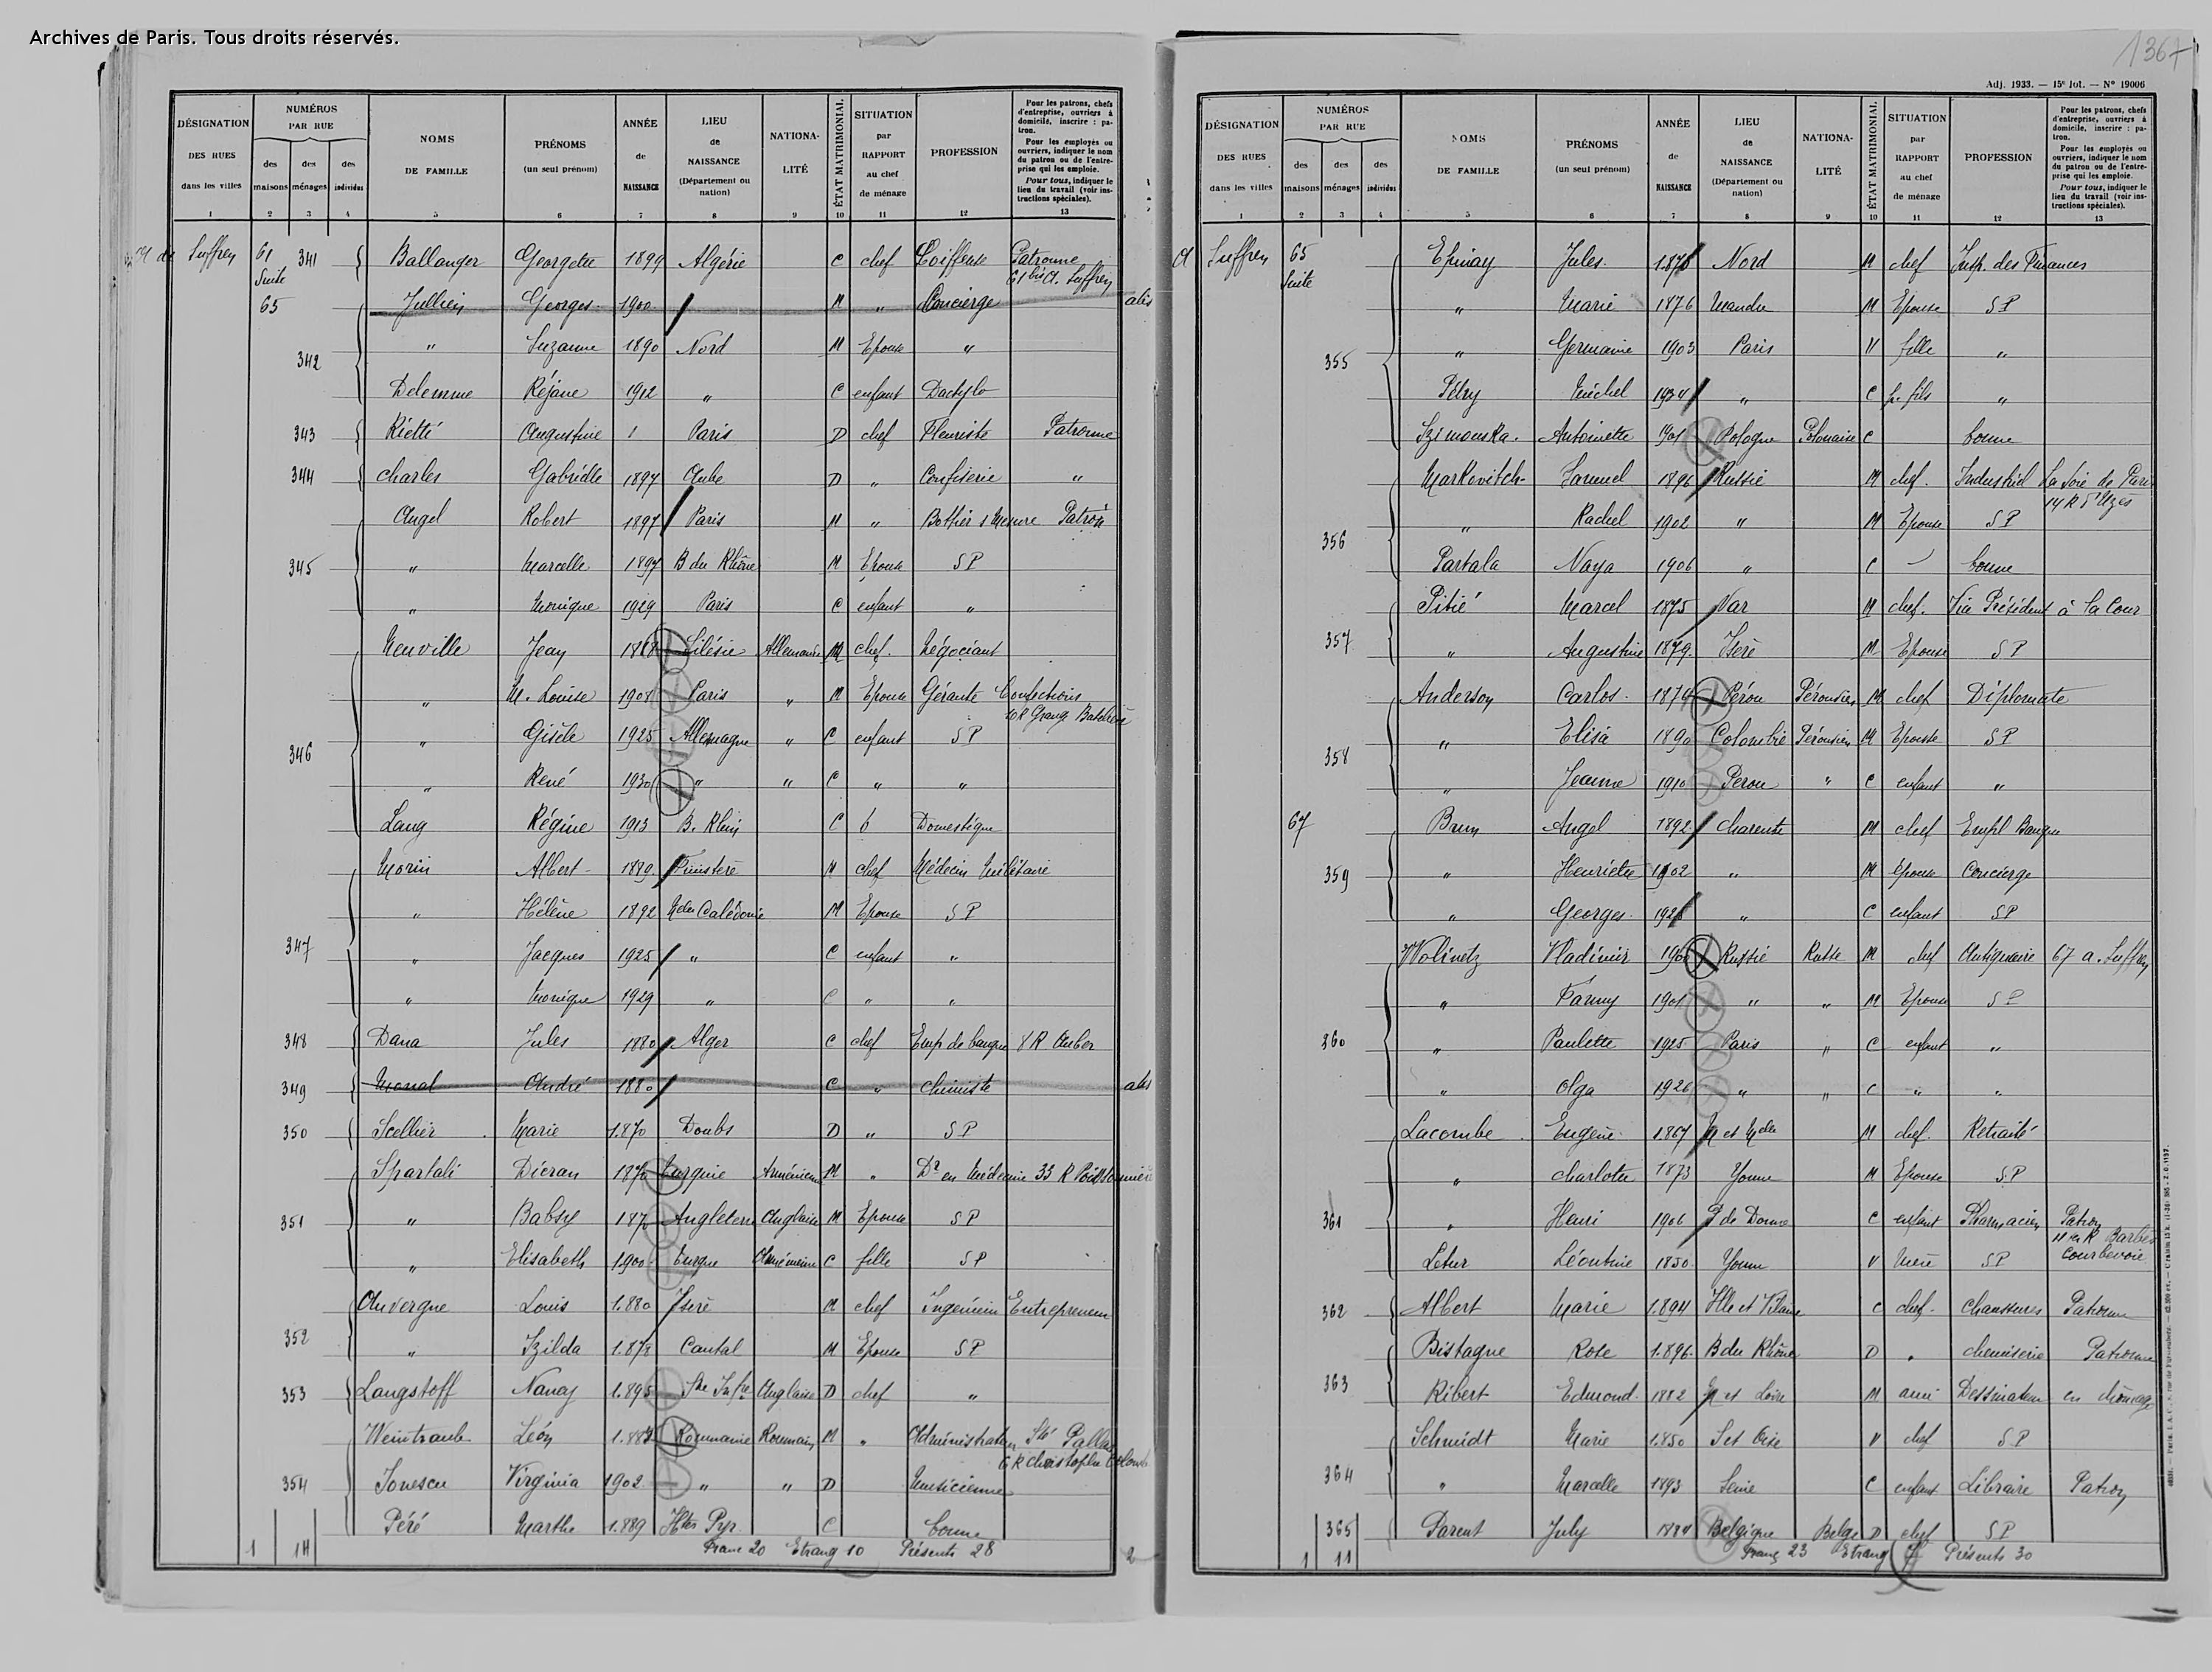 Archives de Paris. Tous droits réservés.
1367
DÉSIGNATION DES RUES dans les villes 1
NUMÉROS PAR RUE
des maisons 2 des ménages 3 des individus 4
NOMS DE FAMILLE 5
PRÉNOMS (un seul prénom) 6
ANNÉE de NAISSANCE 7
LIEU de NAISSANCE (Département ou nation) 8
NATIONALITÉ 9
ÉTAT MATRIMONIAL. 10
SITUATION par RAPPORT au chef de ménage 11
PROFESSION 12
Pour les patrons, chefs d'entreprise, ouvriers à domicile, inscrire : patron.
Pour les employés ou ouvriers, indiquer le nom du patron ou de l'entreprise qui les emploie.
Pour tous, indiquer le lieu du travail (voir instructions spéciales). 13
de Suffren 61 341 Ballanger Georgette 1899 Algérie C chef Coiffeuse Patronne
Suite 61 bis A. Suffren
65 Jullien Georges 1900 M " Concierge abs
342 " Suzanne 1890 Nord M Epouse "
Delemme Réjane 1912 " C enfant Dactylo
343 Riétté Augustine 1 Paris D chef Fleuriste Patronne
344 Charles Gabrielle 1897 Aube D " Confiserie "
Angel Robert 1897 Paris M " Bottier s Mesure Patron
345 " Marcelle 1897 B du Rhône M Epouse SP
" Monique 1929 Paris C enfant "
Neuville Jean 1888 Silésie Allemande M chef. Négociant
" M. Louise 1908 Paris " M Epouse Gérante Confections
108 Grange Batelière
" Gisèle 1925 Allemagne " C enfant SP
346 " René 1930 " " C " "
Lang Régine 1913 B. Rhin C Domestique
Morin Albert 1889 Finistère M chef Médecin Militaire
" Hélène 1892 Nlle Calédonie M Epouse SP
347 " Jacques 1925 " C enfant "
" Monique 1929 " C " "
348 Dana Jules 1880 Alger C chef Emp de banque 8 R Auber
349 Monal André 1880 C " Chimiste abs
350 Scellier Marie 1.870 Doubs D " SP
Spartali Dicran 1870 Turquie Arménienne M " Dr en Médecine 33 R Poissonnière
351 " Babsy 187 Angleterre Anglaise M Epouse SP
" Elisabeth 1900 Turque Arménienne C fille SP
Auvergne Louis 1.880 Isère M chef Ingénieur Entrepreneur
352 " Izilda 1.878 Cantal M Epouse SP
353 Langstoff Nancy 1.895 Ste Infre Anglaise D chef "
Weintraub Léon 1.887 Roumanie Roumain M " Administrateur Sté Pallas
6 R Christophe Colomb
354 Ionescu Virginia 1902 " " D Musicienne
Péré Marthe 1.889 Htes Pyr. C bonne
1 14 Franc 20 Etrang 10 Présents 28 2
Adj. 1933. — 15e lot. — No 19006
DÉSIGNATION DES RUES dans les villes 1
NUMÉROS PAR RUE
des maisons 2 des ménages 3 des individus 4
NOMS DE FAMILLE 5
PRÉNOMS (un seul prénom) 6
ANNÉE de NAISSANCE 7
LIEU de NAISSANCE (Département ou nation) 8
NATIONALITÉ 9
ÉTAT MATRIMONIAL. 10
SITUATION par RAPPORT au chef de ménage 11
PROFESSION 12
Pour les patrons, chefs d'entreprise, ouvriers à domicile, inscrire : patron.
Pour les employés ou ouvriers, indiquer le nom du patron ou de l'entreprise qui les emploie.
Pour tous, indiquer le lieu du travail (voir instructions spéciales). 13
A Suffren 65 Epinay Jules 1.875 Nord M chef Insp. des Finances
Suite
" Marie 1876 Meurthe M Epouse SP
355 " Germaine 1903 Paris V fille "
Pétry Michel 1934 " C p. fils "
Szimouska Antoinette 1901 Pologne Polonaise C bonne
Markovitch Samuel 1896 Russie M chef. Industriel La Soie de Paris
14 R d'Uzès
356 " Rachel 1902 " M Epouse SP
Partala Naya 1906 " C bonne
Pitié Marcel 1875 Var M chef. Vice Président à la Cour
357 " Augustine 1879. Isère M Epouse SP
Anderson Carlos 1874 Pérou Péruvien M chef Diplomate
358 " Elisa 1890 Colombie Pérousien M Epouse SP
" Jeanne 1910 Perou " C enfant "
67 Brun Angel 1892 Charente M chef Empl Banque
359 " Henriette 1902 " M Epouse Concierge
" Georges 1928 " C enfant SP
Wolinetz Vladimir 1900 Russie Russe M chef Antiquaire 67 a. Suffren
" Fanny 1901 " " M Epouse SP
360 " Paulette 1925 Paris " C enfant "
" Olga 1926 " " C " "
Lacombe Eugène 1.867 M et Mlle M chef. Retraité
" Charlotte 1873 Yonne M Epouse SP
361 " Henri 1906 P de Dome C enfant Pharmacien Patron
11 R Barbès
Courbevoie
Letur Léontine 1850 Yonne V Mère SP
362 Albert Marie 1.894 Ille et Vilaine C chef Chaussures Patronne
Bistagne Rose 1.896 B du Rhône D " chemiserie Patronne
363 Ribert Edmond 1882 M et Loire M ami Dessinateur en chômage
Schmidt Marie 1.850 S et Oise V chef SP
364 " Marcelle 1893 Seine C enfant Libraire Patron
365 Parent July Belgique Belge D chef SP
1 11 Franç 23 Etrang 7 Présents 30